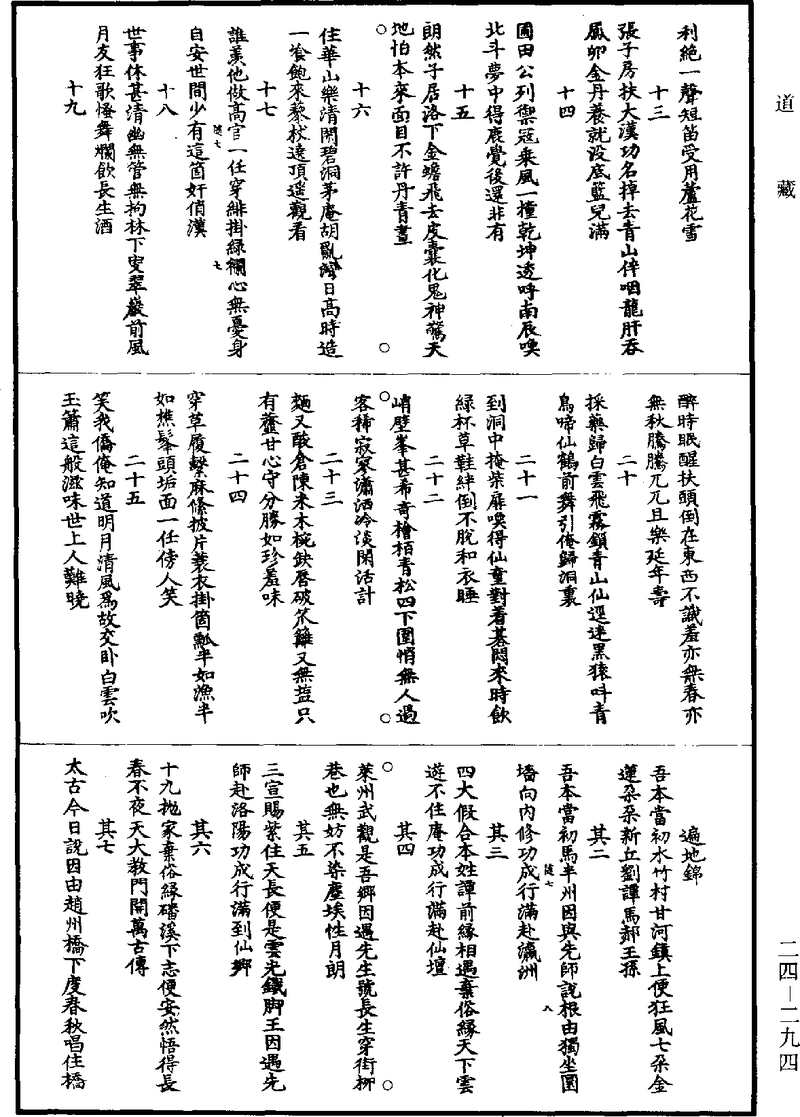 道藏
利絕一聲短笛受用蘆花雪
十三
張子房扶大漢功名掉去青山伴咽龍肝吞
鳳卵金丹養就没底籃兒滿
十四
圃田公列禦冠乗風一撞乾坤透呼南辰喚
北斗夢中得鹿覺後還非有
十五
朗然子居洛下金蟾飛去皮囊化鬼神驚天
地怕本來面目不許丹青畫
十六
住華山樂清閑碧洞茅庵胡亂灣日高時造
一飡飽來藜杖遶頂遥觀看
十七
誰羨他做高官一任穿緋掛綠襴心無憂身
自安世間少有這箇好俏漢
十八
世事休甚清幽無管無拘林下叟翠巖前風
月友狂歌慢舞爛飲長生酒
十九
随七
七
醉時眠醒扶頭倒在東西不識羞亦無春亦
無秋騰騰兀兀且樂延年壽
二十
採藥歸白雲飛霧鎖青山仙逕迷黑猿呌青
鳥啼仙鶴前舞引俺歸洞裏
二十一
到洞中掩柴扉喚得仙童對着碁悶來時飲
綠杯草鞋絆倒不脫和衣睡
二十二
峭壁峯甚希竒檜栢青松四下圍悄無人過
客稀寂寥瀟洒冷淡閑活計
二十三
麵又酸倉陳米木椀鈌唇破笊籬又無塩只
有虀甘心守分勝如珍羞味
二十四
穿草履繫麻絛披片蓑衣掛箇瓢半如漁半
如樵髼頭垢面一任傍人笑
二十五
笑我儕俺知道明月清風爲故交卧白雲吹
玉簫這般滋味世上人難曉
遍地錦
吾本當初水竹村甘河鎮上便狂風七朵金
蓮朶朶新丘劉譚馬郝王孫
其二
吾本當初馬半州因與先師說根由獨坐圜
墻向内修功成行滿赴瀛洲
其三
四大假合本姓譚前緣相遇棄俗緣天下雲
遊不住庵功成行滿赴仙壇
其四
萊州武觀是吾鄉因遇先生號長生穿街柳
巷也無妨不染塵埃性月朗
其五
三宣賜紫住天長便是雲光鐵脚王因遇先
師赴洛陽功成行滿到仙鄉
其六
十九抛家棄俗緣磻溪下志便安然悟得長
春不夜天大教門開萬古傳
其七
太古今日說因由趙州橋下度春秋唱住橋
随七
八
二四—二九四